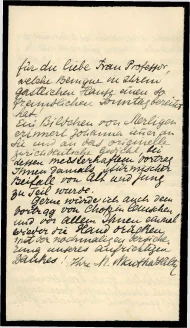 für die liebe Frau Professor,
welche Benigne in Ihrem
gastlichen Hause einen so
freundlichen Sonntag bereitet
hat.
Ein Bildchen von Merligen
erinnert Johanna immer an
die und an das originelle
Gedicht bei
dessen meisterhaftem Vortrag
Ihnen damals stürmischer
Beifall von Alt und Jung
zu Teil wurde.
Gerne würde ich auch dem
Vortrag von Chopin lauschen
und vor allem Ihnen einmal
wieder die Hand drücken,
mit der nochmaligen Versiche-
rung unseres aufrichtigen
Dankes! Ihre